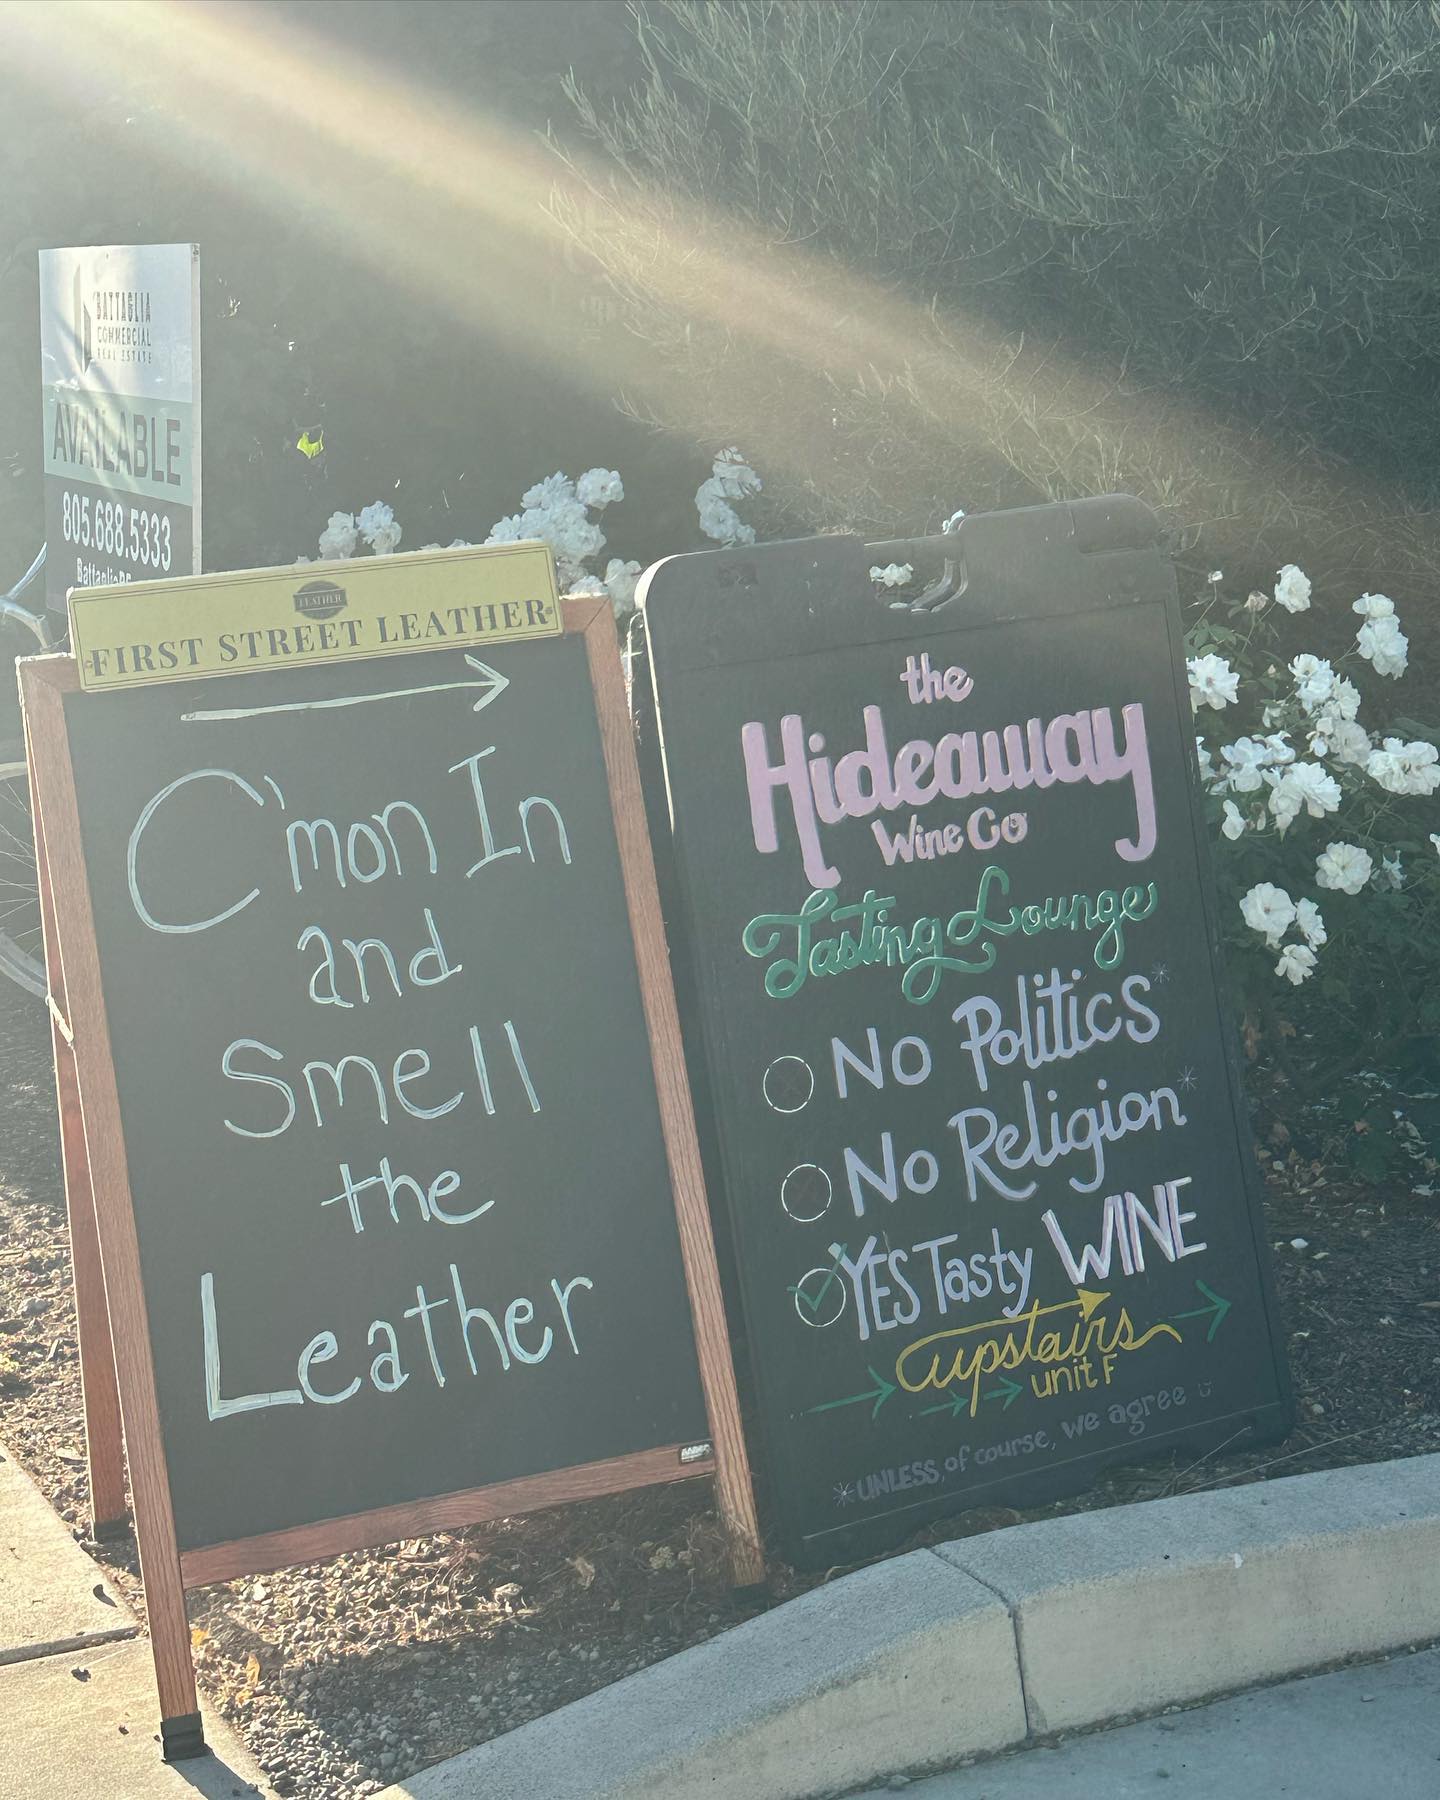 BATTAGLIA
COMMERCIAL
REAL ESTATE
AVAILABLE
805.688.5333
LEATHER
FIRST STREET LEATHER
C'mon In
and
Smell
the
Leather
the
Hideaway
Wine Co
Tasting Lounge
No Politics*
No Religion*
YES Tasty WINE
upstairs
unit F
*UNLESS, of course, we agree